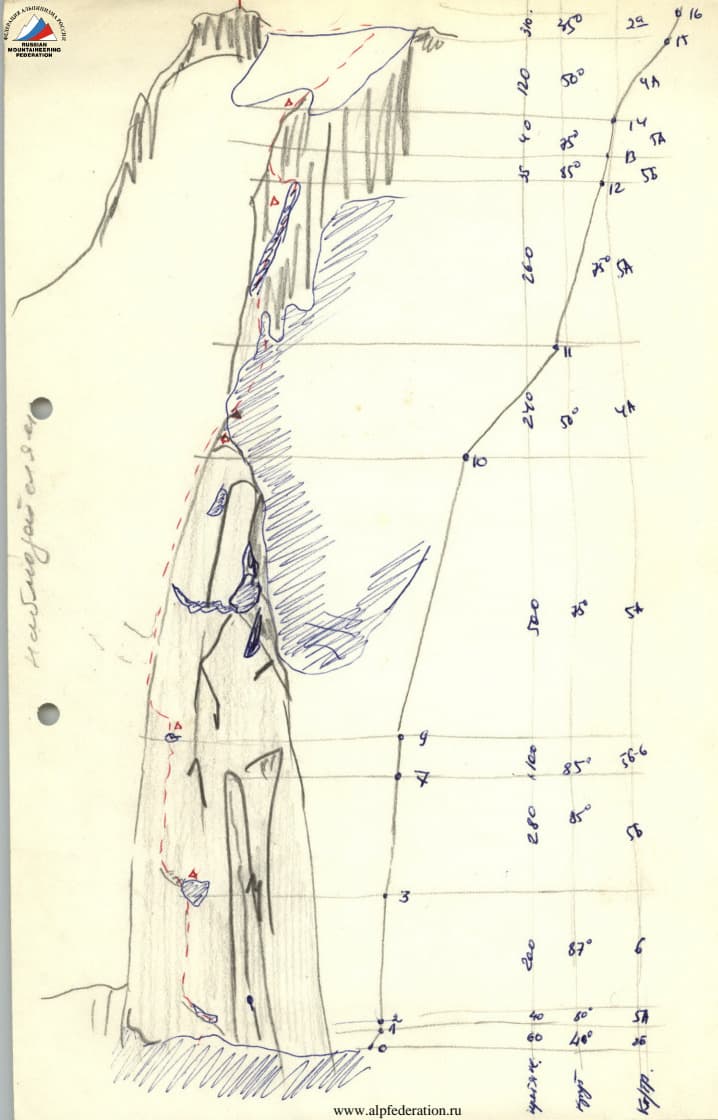 ФЕДЕРАЦИЯ АЛЬПИНИЗМА РОССИИ
RUSSIAN
MOUNTAINEERING
FEDERATION
310. 45° 2а 16
15
120 50° 4А
14
40 75° 5А
13
35 85° 5Б
12
260 75° 5А
11
240 50° 4А
10
500 75° 5А
9
100 85°
280 85° 5Б
3
200 87° 6
2
40 80° 5А
1
60 40° 2б
0
www.alpfederation.ru